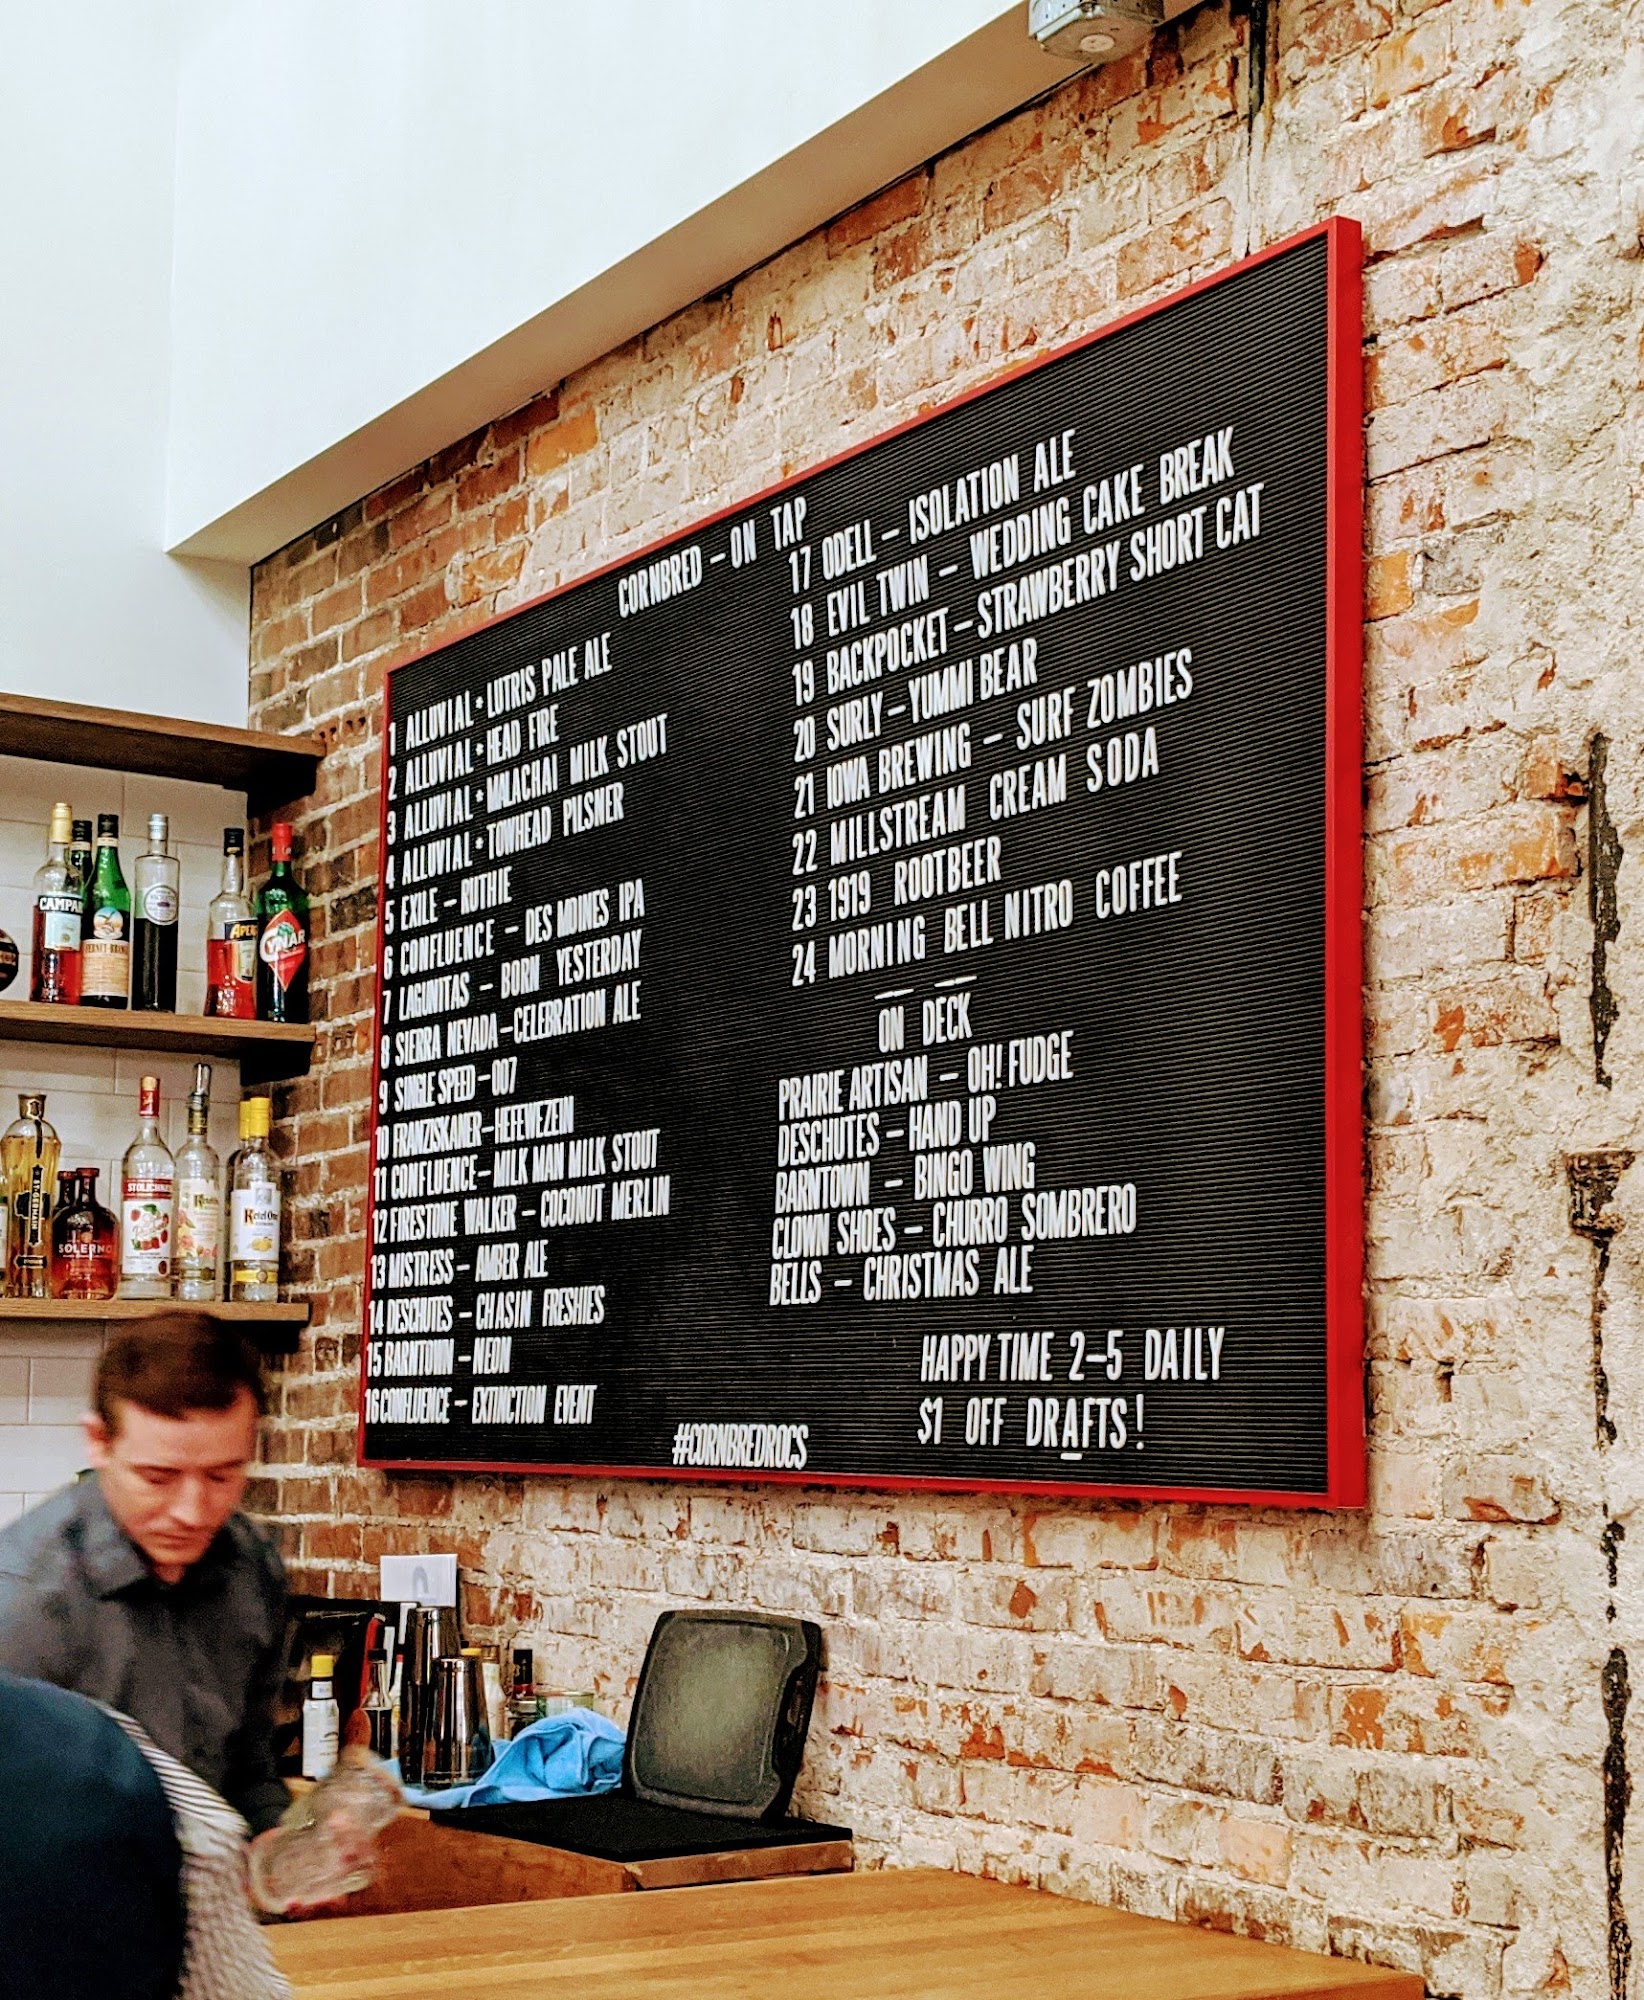 CORNBRED – ON TAP
1 ALLUVIAL * LUTRIS PALE ALE
2 ALLUVIAL * HEAD FIRE
3 ALLUVIAL * MALACHAI MILK STOUT
4 ALLUVIAL * TOWHEAD PILSNER
5 EXILE – RUTHIE
6 CONFLUENCE – DES MOINES IPA
7 LAGUNITAS – BORN YESTERDAY
8 SIERRA NEVADA – CELEBRATION ALE
9 SINGLE SPEED – 007
10 FRANZISKANER – HEFEWEZEIN
11 CONFLUENCE – MILK MAN MILK STOUT
12 FIRESTONE WALKER – COCONUT MERLIN
13 MISTRESS – AMBER ALE
14 DESCHUTES – CHASIN FRESHIES
15 BARNTOWN – NEON
16 CONFLUENCE – EXTINCTION EVENT
17 ODELL – ISOLATION ALE
18 EVIL TWIN – WEDDING CAKE BREAK
19 BACKPOCKET – STRAWBERRY SHORT CAT
20 SURLY – YUMMI BEAR
21 IOWA BREWING – SURF ZOMBIES
22 MILLSTREAM CREAM SODA
23 1919 ROOTBEER
24 MORNING BELL NITRO COFFEE
ON DECK
PRAIRIE ARTISAN – OH! FUDGE
DESCHUTES – HAND UP
BARNTOWN – BINGO WING
CLOWN SHOES – CHURRO SOMBRERO
BELLS – CHRISTMAS ALE
HAPPY TIME 2–5 DAILY
$1 OFF DRAFTS!
#CORNBREDROCS
CAMPAR
FERNET-BRANCA
APER
CYNAR
ST-GERMAIN
SOLERNO
STOLICHN
Ketel One